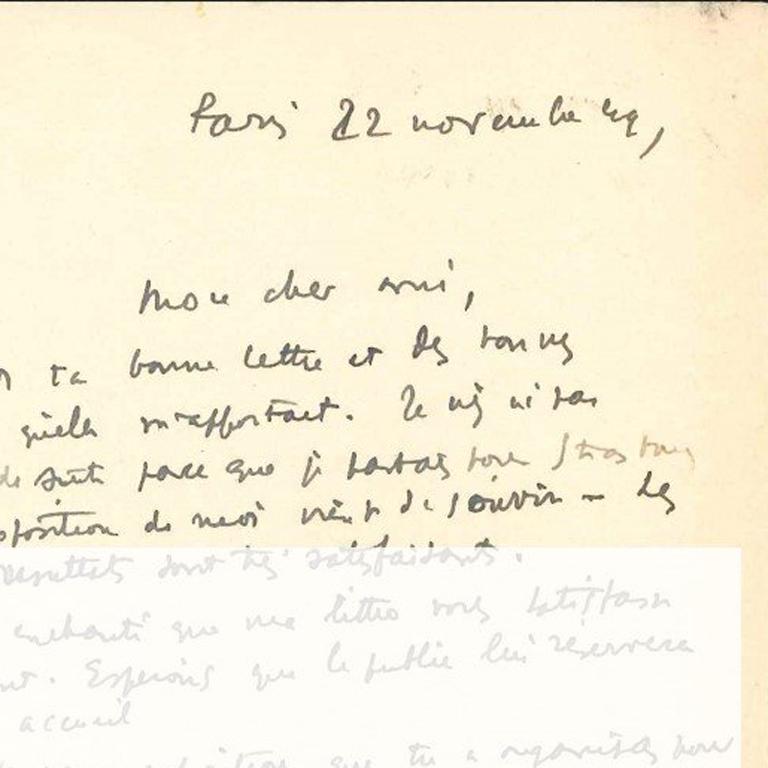 Paris 22 novembre 49,
mon cher ami,
ta bonne lettre et des bonnes
qu'elle m'apportait. Je
de suite parce que je partais pour Strasbourg
exposition de moi vient de s'ouvrir - Les
résultats sont très satisfaisants.
enchanté que ma litho vous satisfasse
Espérons que le public lui réservera
accueil
que tu a organisée pour